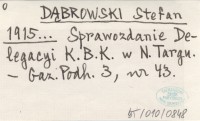 0
DĄBROWSKI Stefan
1915... Sprawozdanie De-
legacyi K.B.K. w N. Targu.
– Gaz. Podh. 3, nr 43.
BT/010/0848